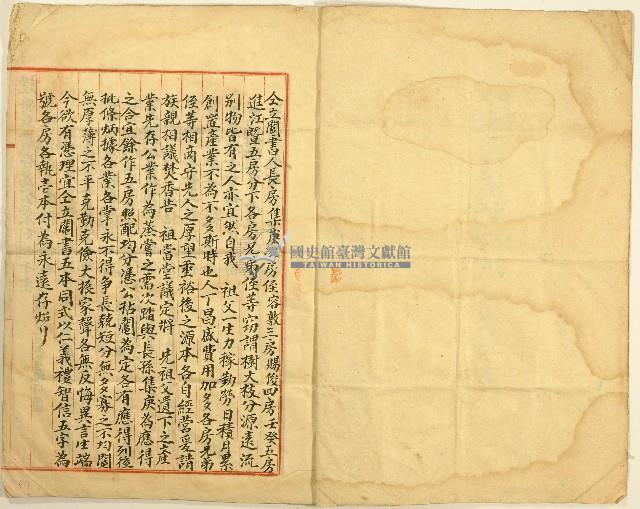 仝立鬮書人長房集庚二房侄容數三房賜俊四房壬癸五房
進江暨五房分下各房兄弟侄等窃謂樹大枝分源遠流
別物皆有之人亦宜然自我 祖父一生力稼勤勞日積月累
創置產業不為不多斯時也人丁昌盛費用加多各房兄弟
侄等相商守先人之厚望垂裕後之源本各自經營爰請
族親相議焚香告 祖當堂議定將 先祖父遺下之產
業先存公業作為蒸嘗之需次踏與長孫集庚為應得
之合宜餘作五房照配均分憑公拈鬮為定各有應得列後
批條炳據各業各掌永不得爭長競短分無多寡之不均鬮
無厚薄之不平克勤克儉大振家聲各無反悔異言生端
今欲有憑理宜仝立鬮書五本同式以仁義禮智信五字為
號各房各執壹本付為永遠存炤
國史館臺灣文獻館
TAIWAN HISTORICA